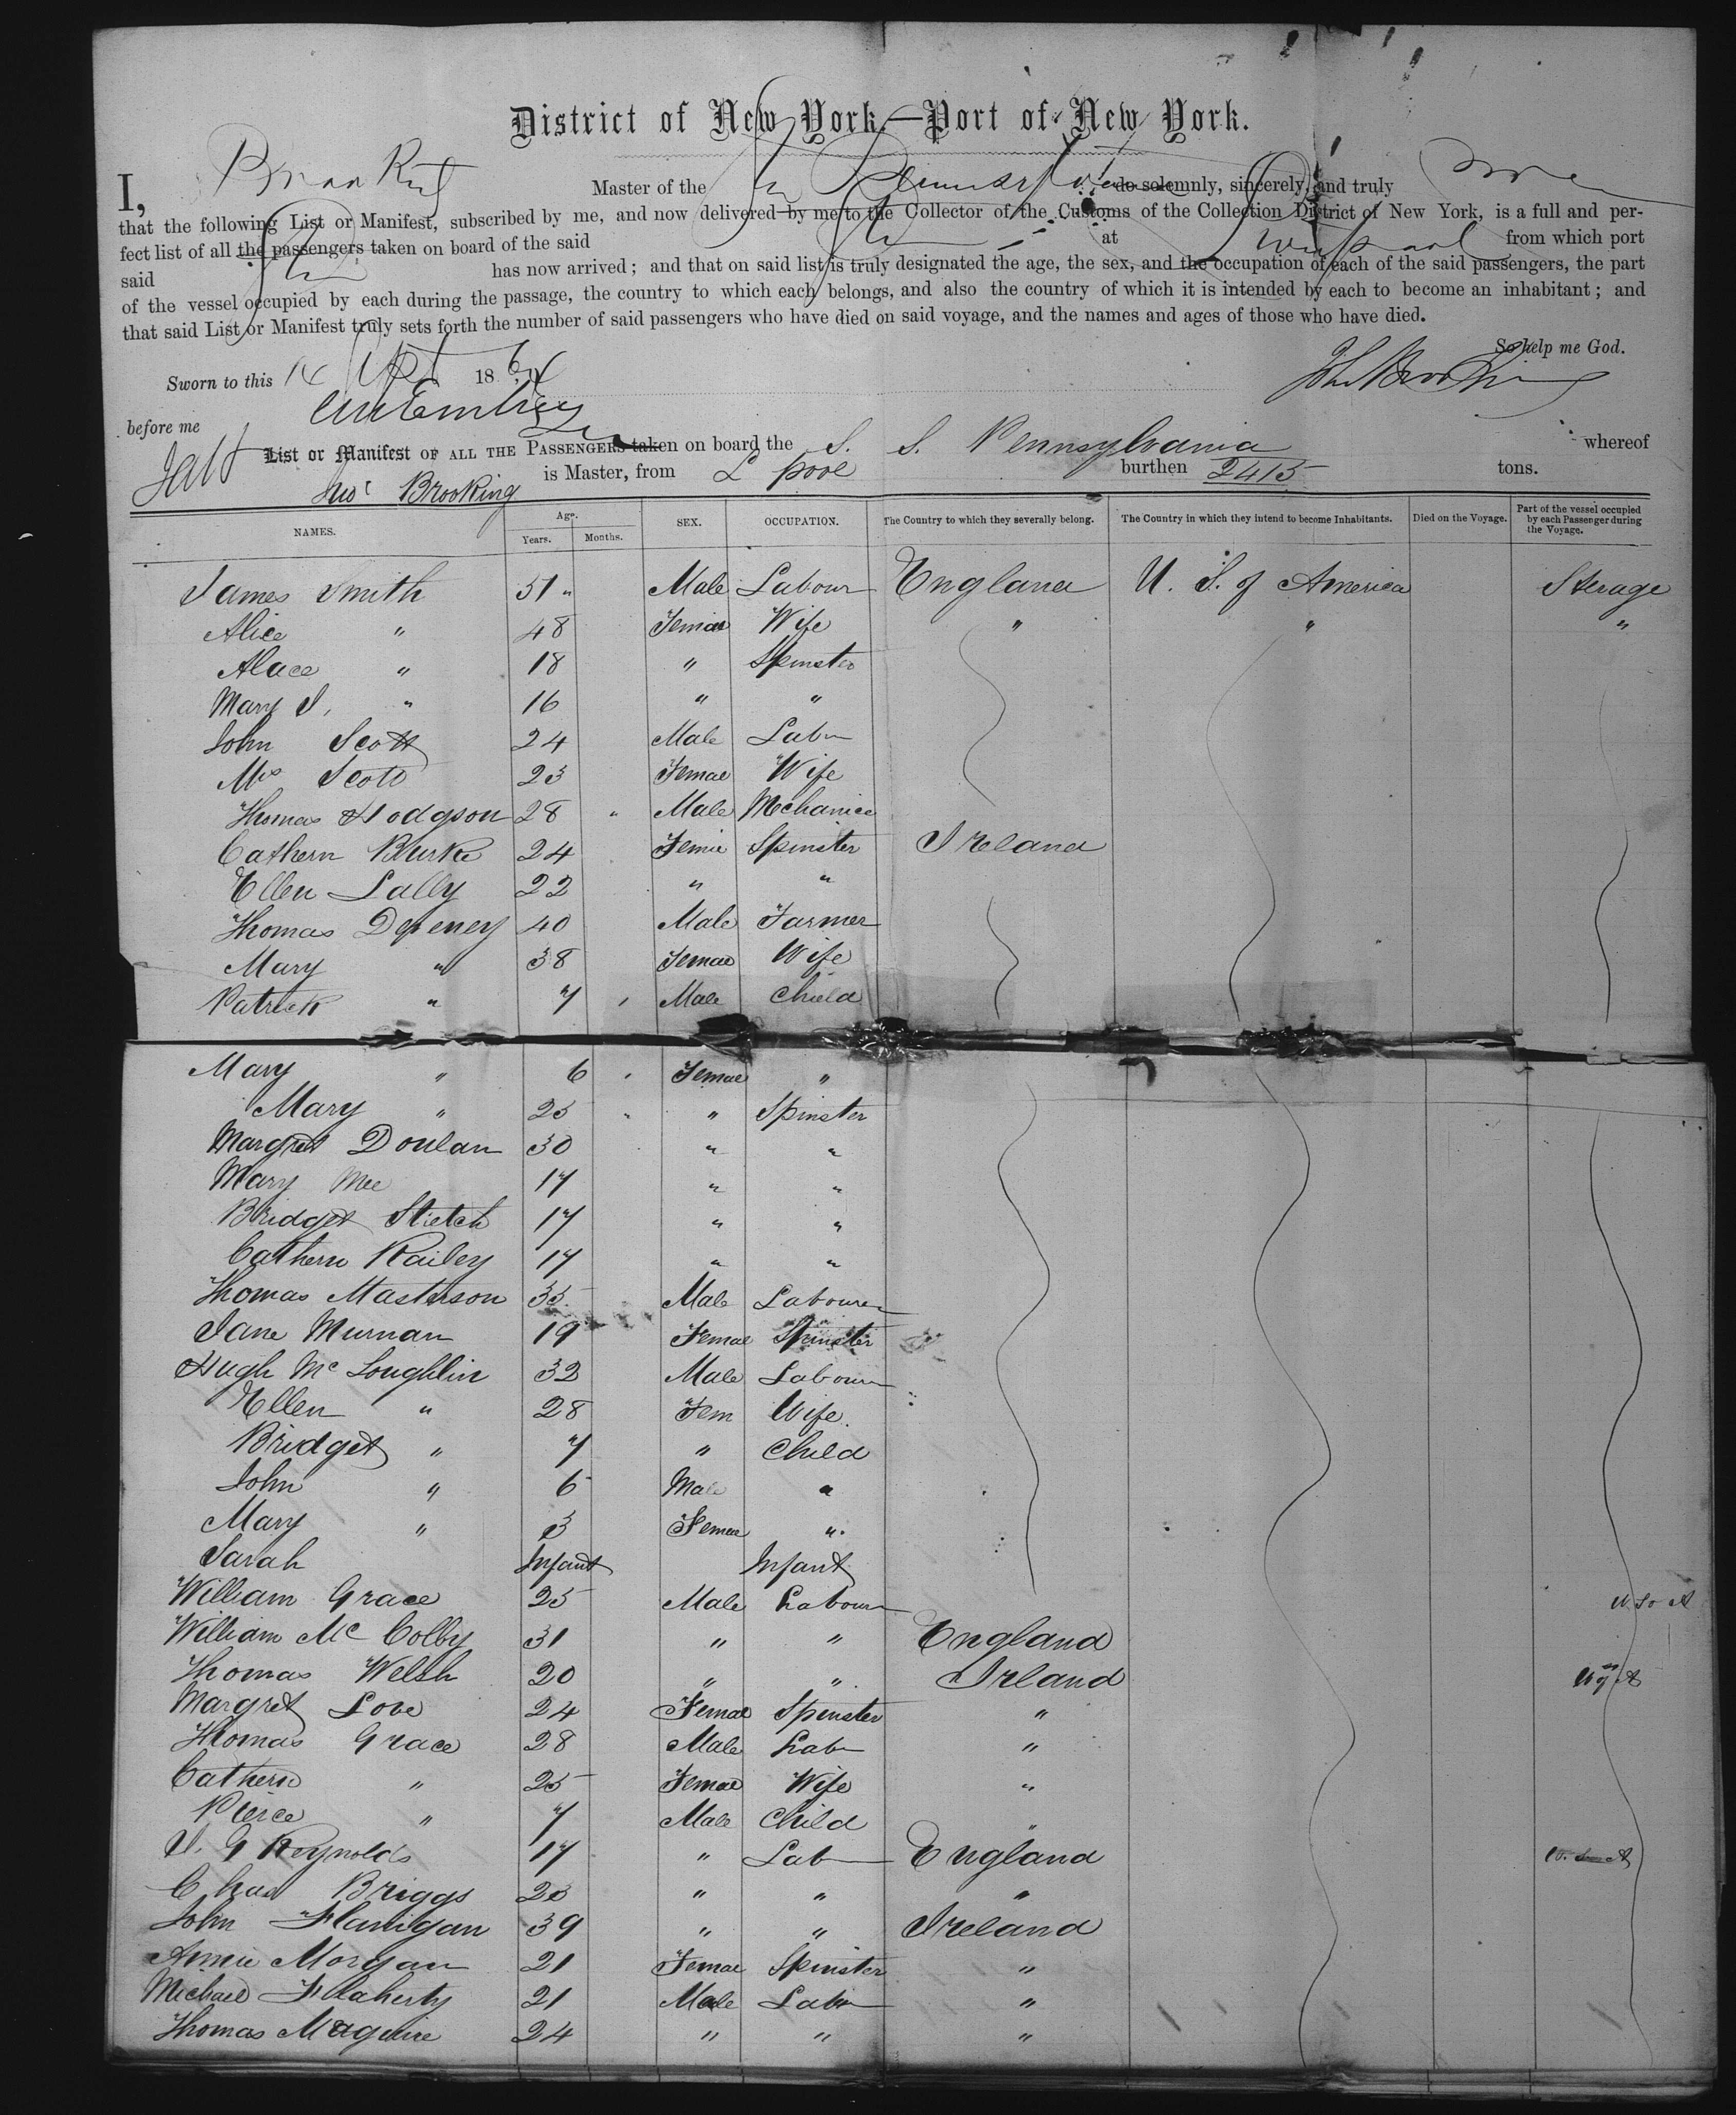 District of New York.—Port of New York.
I, Master of the do solemnly, sincerely, and truly
that the following List or Manifest, subscribed by me, and now delivered by me to the Collector of the Customs of the Collection District of New York, is a full and per-
fect list of all the passengers taken on board of the said at Liverpool from which port
said has now arrived; and that on said list is truly designated the age, the sex, and the occupation of each of the said passengers, the part
of the vessel occupied by each during the passage, the country to which each belongs, and also the country of which it is intended by each to become an inhabitant; and
that said List or Manifest truly sets forth the number of said passengers who have died on said voyage, and the names and ages of those who have died.
So help me God.
Sworn to this 14 1864 John Brooking
before me
List or Manifest OF ALL THE PASSENGERS taken on board the S. S. Pennsylvania whereof
Brooking is Master, from L pool burthen 2415 tons.
NAMES. Age. Years. Months. SEX. OCCUPATION. The Country to which they severally belong. The Country in which they intend to become Inhabitants. Died on the Voyage. Part of the vessel occupied by each Passenger during the Voyage.
James Smith 51 " Male Labour England U. S. of America Sterage
Alice " 48 Femae Wife " " "
Alace " 18 " Spinster
Mary J. " 16 " "
John Scott 24 Male Labr
Mrs Scott 23 Femae Wife
Thomas Hodgson 28 " Male Mechanic
Cathern Burke 24 Femie Spinster Ireland
Ellen Lally 22 " "
Thomas 40 Male Farmer
Mary " 38 Femae Wife
Patrick " 7 Male Child
Mary " 6 Femae "
Mary " 25 " Spinster
Margret Doulan 30 " "
Mary Mee 17 " "
Bridget Stretch 17 " "
Cathern Railey 17 " "
Thomas Masterson 35 Male Labourer
Jane Murnan 19 Femae Spinster
Hugh Mc Loughlin 32 Male Labour
Ellen " 28 Fem Wife
Bridget " 7 " Child
John " 6 Male "
Mary " 3 Femae "
Sarah Infant Infant
William Grace 25 Male Labour U. S. A
William Mc Colby 31 " " England
Thomas Welsh 20 " " Irland
Margret Love 24 Femae Spinster "
Thomas Grace 28 Male Labr "
Cathern " 25 Femae Wife "
Pierce " 7 Male Child "
J. G Reynolds 17 " Lab England
Chas Briggs 23 " " "
John Flanigan 39 " " Ireland
Annie Morgan 21 Femae Spinster "
Michael Flaherty 21 Male Labr "
Thomas Maguire 24 " " "